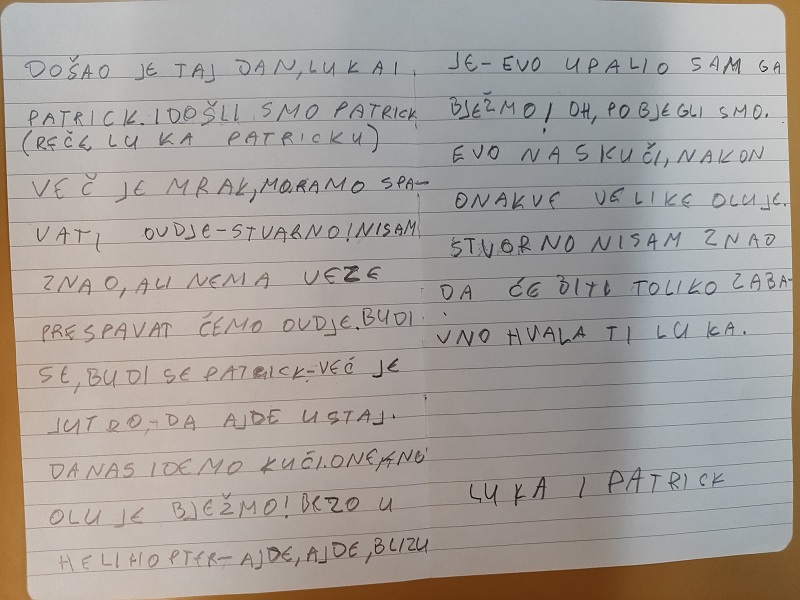 DOŠAO JE TAJ DAN, LUKA I
PATRICK. I DOŠLI SMO PATRICK
(REČE LUKA PATRICKU)
VEČ JE MRAK, MORAMO SPA-
VATI OVDJE-STVARNO! NISAM
ZNAO, ALI NEMA VEZE
PRESPAVAT ČEMO OVDJE. BUDI
SE, BUDI SE PATRICK-VEČ JE
JUTRO,-DA AJDE USTAJ.
DANAS IDEMO KUČI. ONE, NO
OLUJE BJEŽMO! BRZO U
HELIHOPTER-AJDE, AJDE, BLIZU
JE-EVO UPALIO SAM GA
BJEŽMO! OH, POBJEGLI SMO.
EVO NAS KUČI, NAKON
ONAKVE VELIKE OLUJE.
STVORNO NISAM ZNAO
DA ČE BITI TOLIKO ZABA-
VNO HVALA TI LUKA.
LUKA I PATRICK